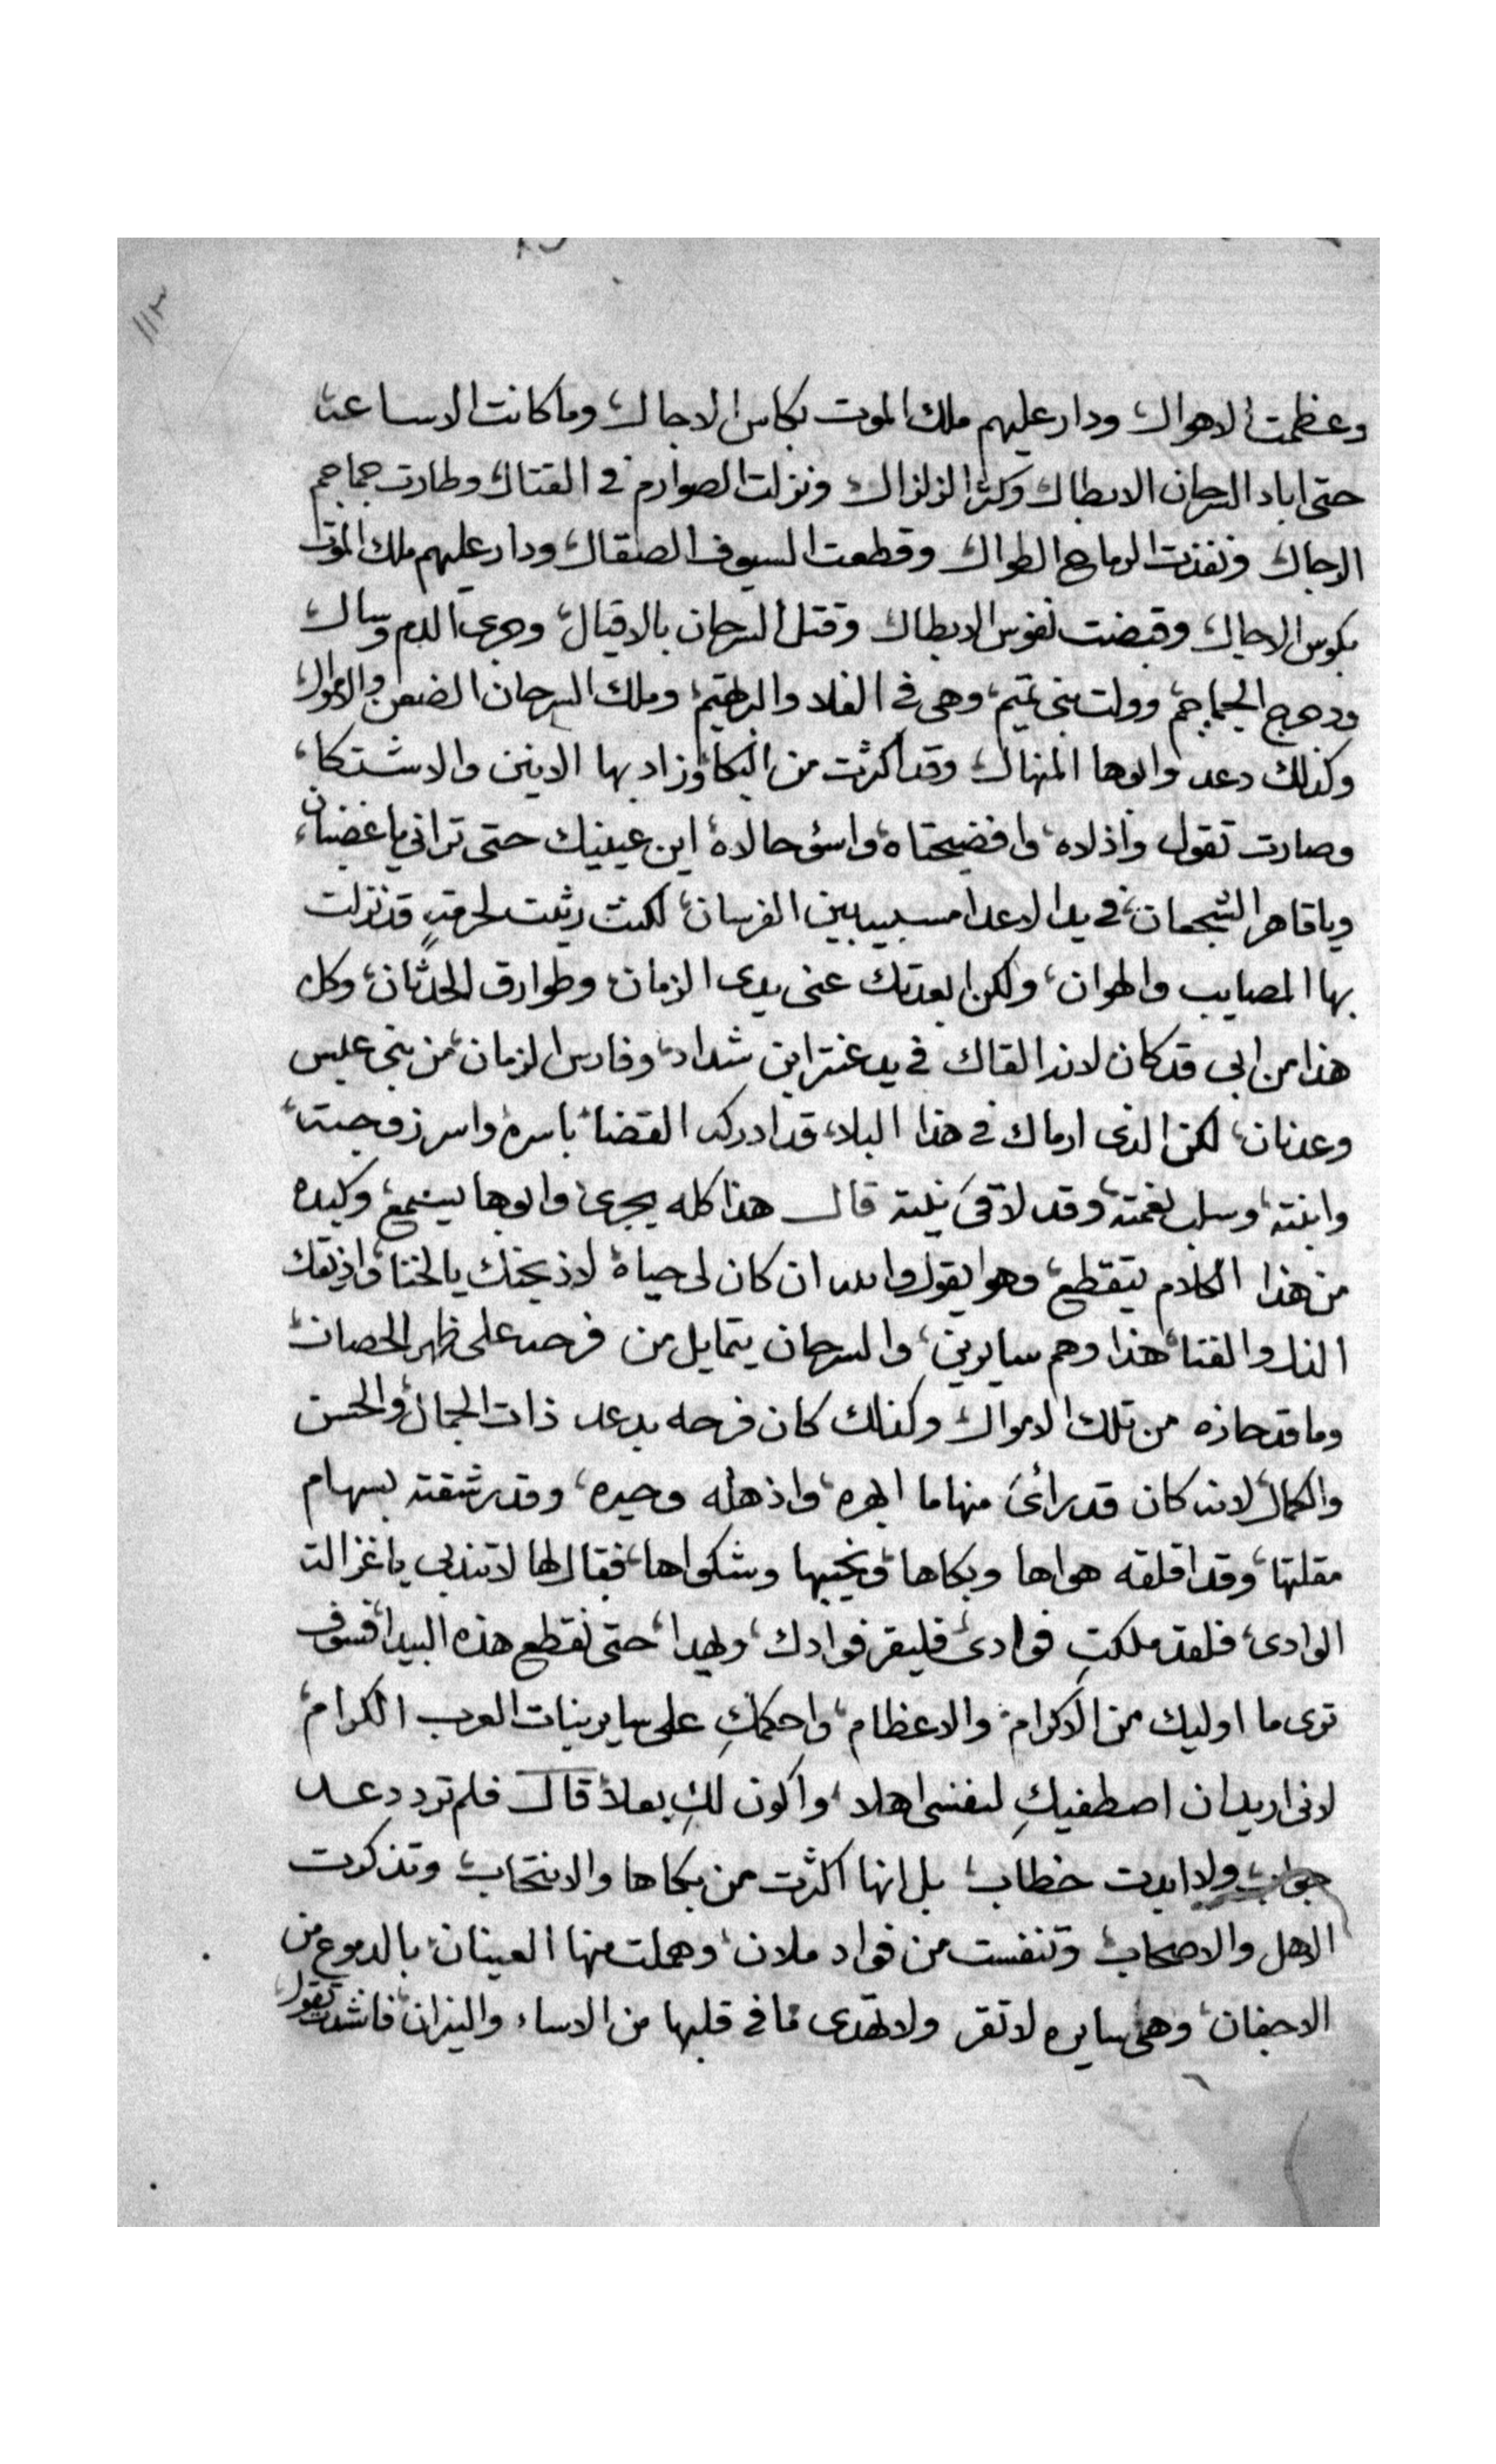 ١١٣
وعظمت الاهوال، ودار عليهم ملك الموت بكاس الاجال، وما كانت الا ساعة،
حتى اباد السرحان الابطال، وكثر الزلزال، ونزلت الصوارم في القتال، وطارت جماجم
الرجال، ونفذت الرماح الطوال، وقطعت السيوف الصقال، ودار عليهم ملك الموت
بكوس الاجال، وقبضت نفوس الابطال، وقتل السرحان بالاقيال، وجرى الدم وسال،
ودحرج الجماجم، وولت بني تميم، وهي في الفلا والبر تهيم، وملك السرحان الضعن والاموال،
وكذلك دعد وابوها المنهال، وقد اكثرت من البكا، وزاد بها الانين والاشتكا،
وصارت تقول واذلاه، وافضيحتاه، واسؤ حالاه، اين عينيك حتى تراني يا غضبان،
ويا قاهر الشجعان، في يد الاعدا مسبيه بين الفرسان، لكنت رثيت لحرمةٍ قد نزلت
بها المصايب والهوان، ولكن ابعدتك عني يدى الزمان، وطوارق الحدثان، وكل
هذا من ابي قد كان لانه القاك في يد عنتر ابن شداد، وفارس الزمان، من بني عبس
وعدنان، لكن الذى ارماك في هذا البلا، قد ادركه القضا، باسره، واسر زوجته،
وابنته، وسلب نعمته، وقد لاقى نيته قال هذا كله يجرى، وابوها يسمع، وكبده
من هذا الكلام يتقطع، وهو يقول والله ان كان لى حياة، لاذبحنك يالخنا، واذيقك
الذل والفنا، هذا وهم سايرين، والسرحان يتمايل من فرحه على ظهر الحصان،
وما قد حازه من تلك الاموال، وكذلك كان فرحه بدعد ذات الجمال، والحسن
والكمال، لانه كان قد رأى منها ما ابهره، واذهله وحيره، وقد رشقته بسهام
مقلتها، وقد اقلقه هواها وبكاها، ونحيبها وشكواها، فقال لها لا تندبي يا غزالة
الوادى، فلقد ملكتِ فوادى، فليقر فوادك، ويهدا، حتى نقطع هذه البيدا، فسوف
ترى ما اوليك من الاكرام، والاعظام، واحكمكِ على ساير بنات العرب الكرام،
لاني اريد ان اصطفيكِ لنفسى اهلا، واكون لكِ بعلاً، قال فلم ترد دعد
جواب، ولا ابدت خطاب، بل انها اكثرت من بكاها والانتحاب، وتذكرت
الاهل والاصحاب، وتنفست من فواد ملان، وهملت منها العينان، بالدموع من
الاجفان، وهى سايره لا تقر ولا تهدى مما في قلبها من الاساء والنيران، فانشدت تقول